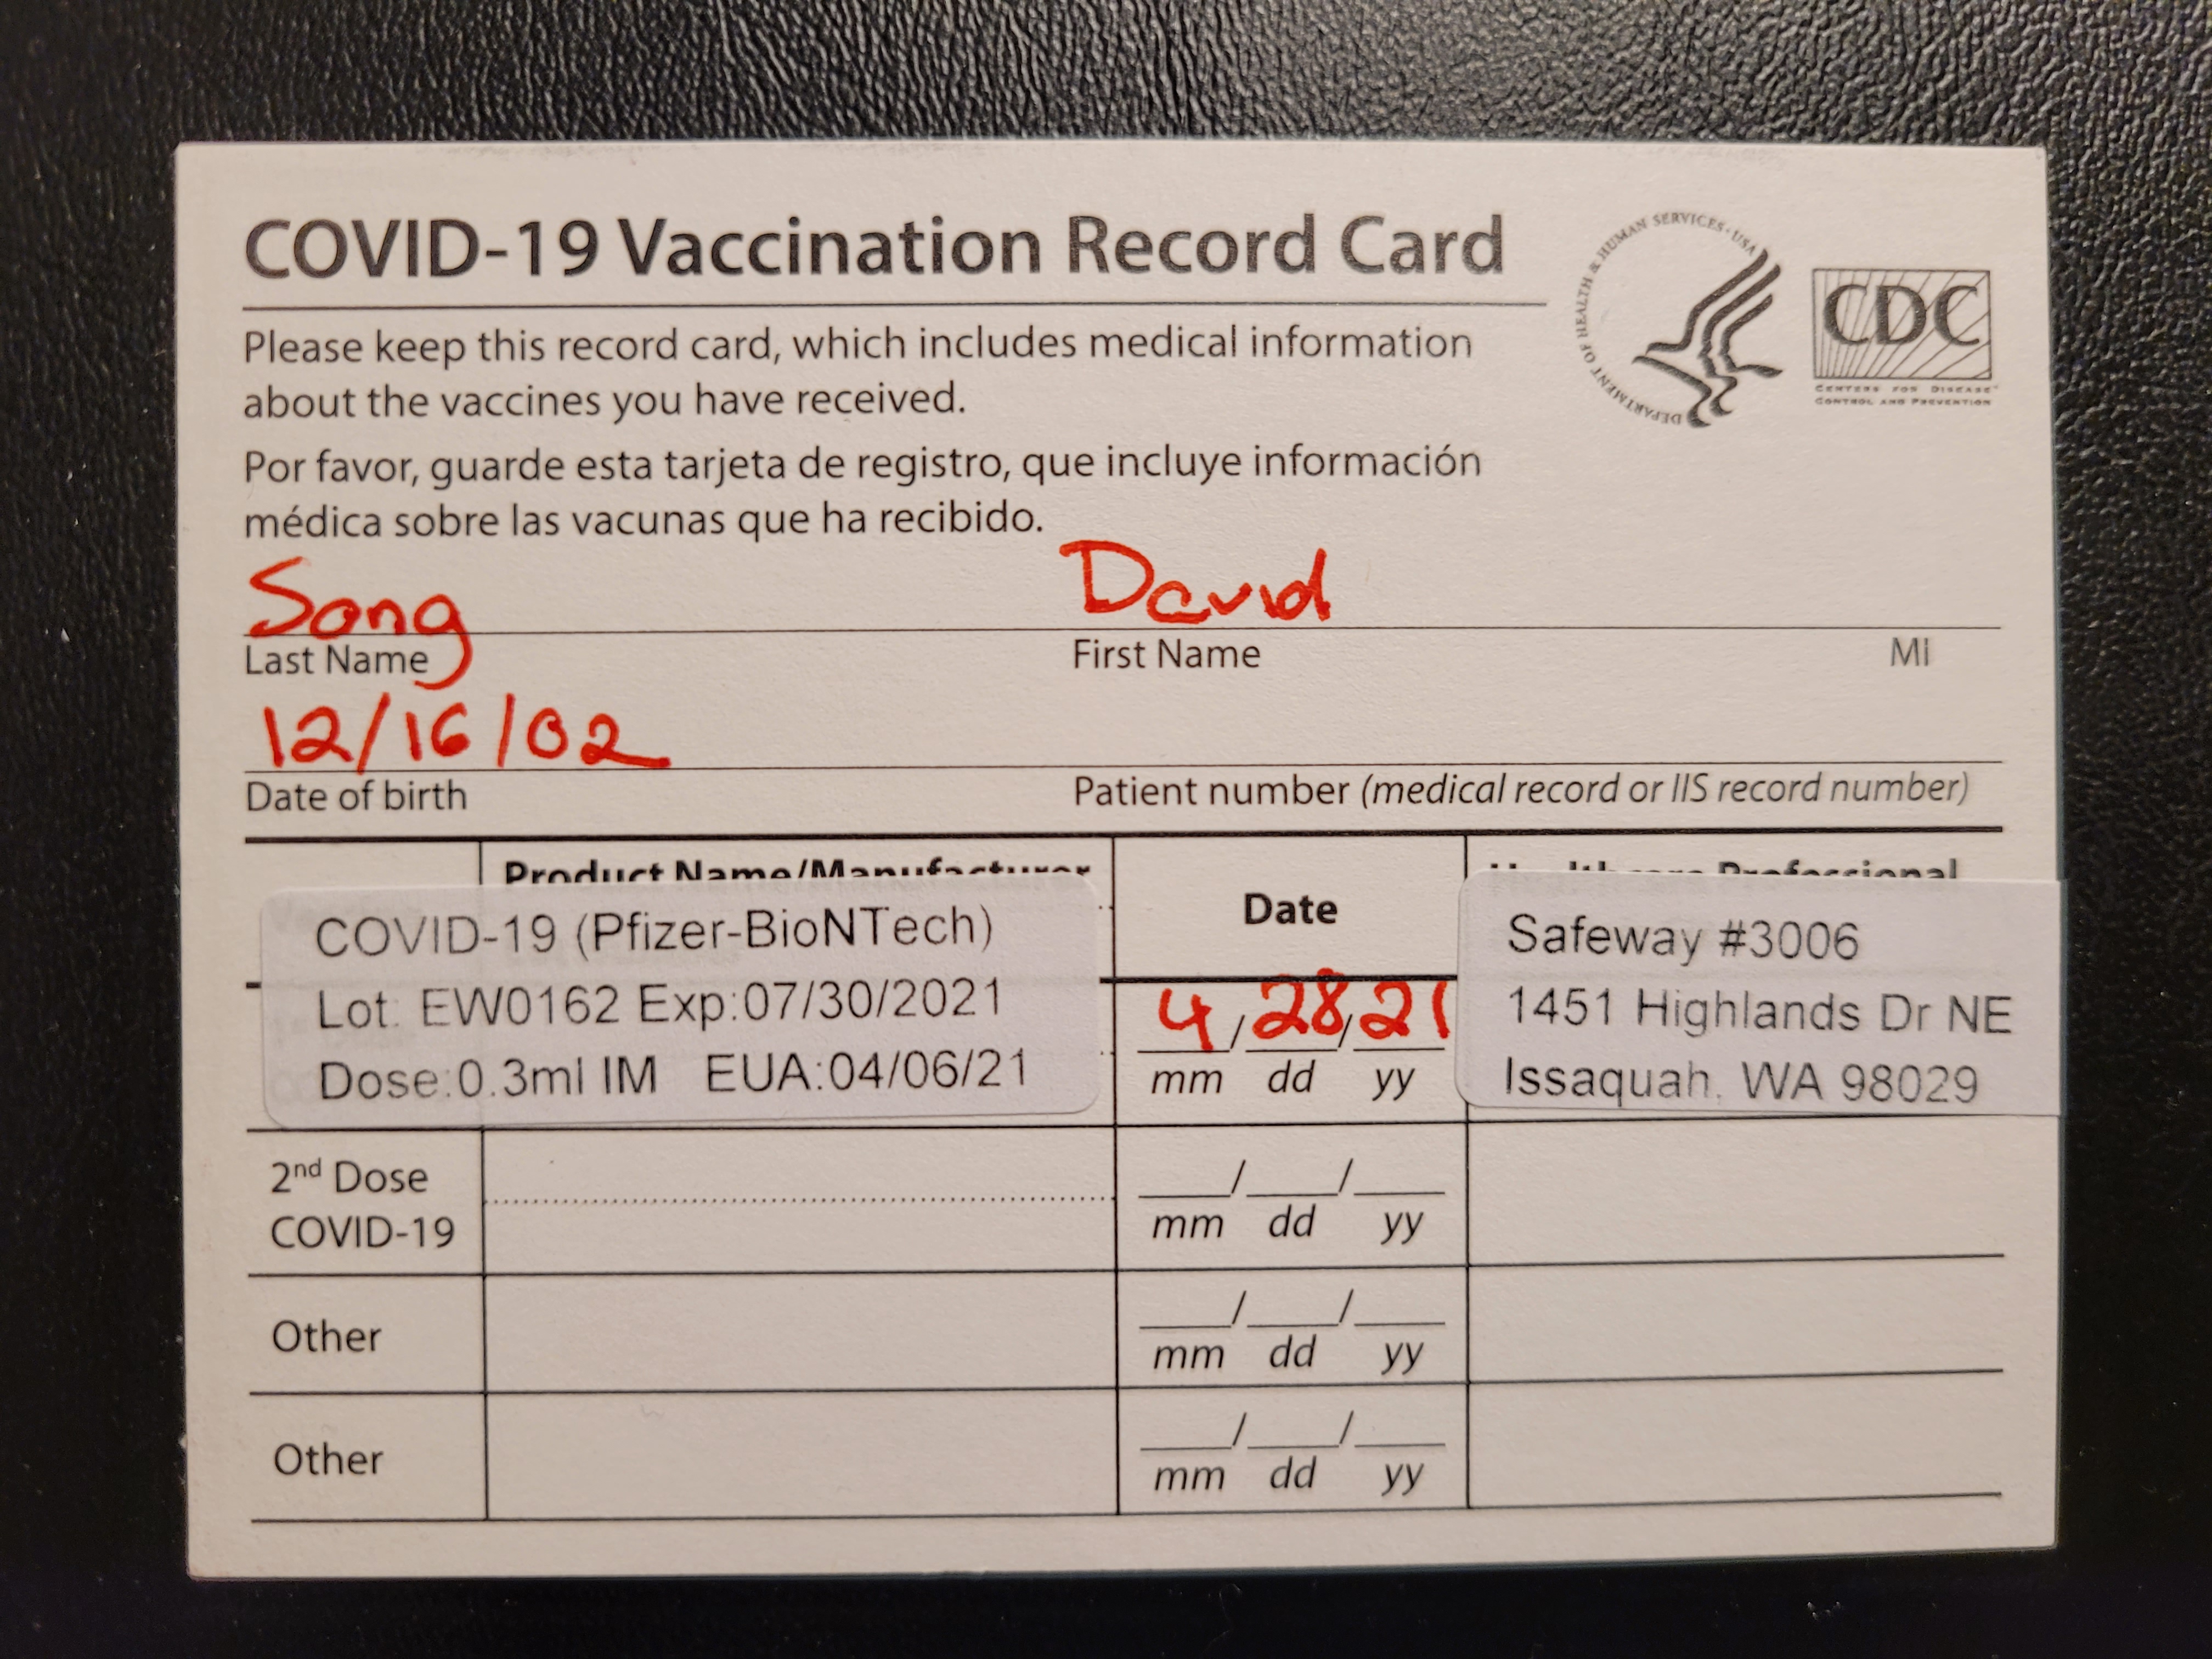 COVID-19 Vaccination Record Card
DEPARTMENT OF HEALTH & HUMAN SERVICES • USA
CDC
CENTERS FOR DISEASE
CONTROL AND PREVENTION
Please keep this record card, which includes medical information
about the vaccines you have received.
Por favor, guarde esta tarjeta de registro, que incluye información
médica sobre las vacunas que ha recibido.
Song David
Last Name First Name MI
12/16/02
Date of birth Patient number (medical record or IIS record number)
Product Name/Manufacturer Date Healthcare Professional
COVID-19 (Pfizer-BioNTech)
Lot: EW0162 Exp:07/30/2021
Dose:0.3ml IM EUA:04/06/21
4/28/21
mm dd yy
Safeway #3006
1451 Highlands Dr NE
Issaquah, WA 98029
2nd Dose
COVID-19
___/___/___
mm dd yy
Other
___/___/___
mm dd yy
Other
___/___/___
mm dd yy